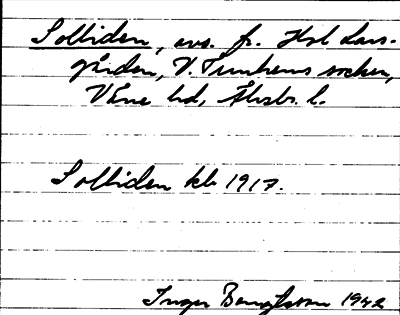 Solliden, avs. fr. Hol Lars-
gården, V. Tunhems socken,
Väne hd, Älvsb. l.
Solliden kb 1917.
Inger Bengtsson 1942